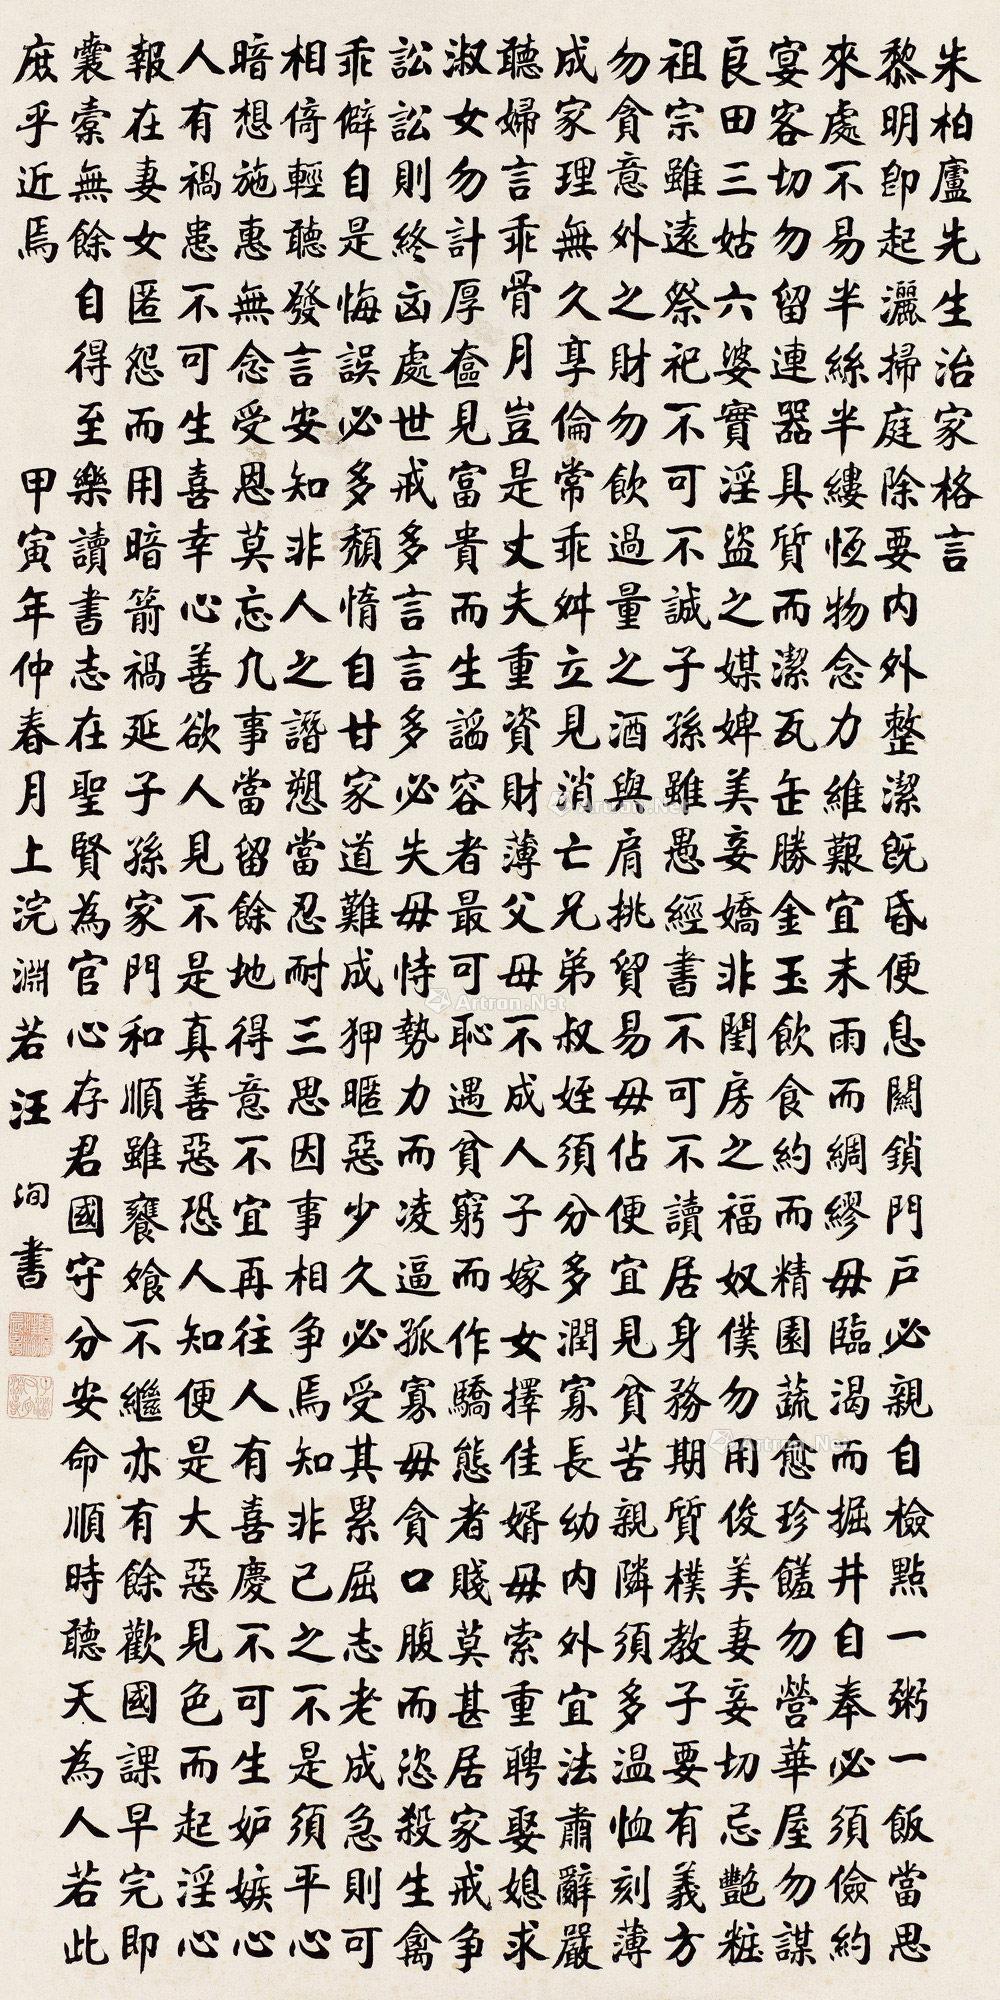 朱柏廬先生治家格言
黎明即起灑掃庭除要內外整潔既昏便息關鎖門戶必親自檢點一粥一飯當思
來處不易半絲半縷恆物念力維艱宜未雨而綢繆毋臨渴而掘井自奉必須儉約
宴客切勿留連器具質而潔瓦缶勝金玉飲食約而精園蔬愈珍饈勿營華屋勿謀
良田三姑六婆實淫盜之媒婢美妾嬌非閨房之福奴僕勿用俊美妻妾切忌艷粧
祖宗雖遠祭祀不可不誠子孫雖愚經書不可不讀居身務期質樸教子要有義方
勿貪意外之財勿飲過量之酒與肩挑貿易毋佔便宜見貧苦親隣須多温恤刻薄
成家理無久享倫常乖舛立見消亡兄弟叔姪須分多潤寡長幼內外宜法肅辭嚴
聽婦言乖骨月豈是丈夫重資財薄父母不成人子嫁女擇佳婿毋索重聘娶媳求
淑女勿計厚奩見富貴而生謟容者最可恥遇貧窮而作驕態者賤莫甚居家戒争
訟訟則終凶處世戒多言言多必失毋恃勢力而凌逼孤寡毋貪口腹而恣殺生禽
乖僻自是悔誤必多頹惰自甘家道難成狎暱惡少久必受其累屈志老成急則可
相倚輕聽發言安知非人之譖愬當忍耐三思因事相争焉知非己之不是須平心
暗想施惠無念受恩莫忘凡事當留餘地得意不宜再往人有喜慶不可生妒嫉心
人有禍患不可生喜幸心善欲人見不是真善惡恐人知便是大惡見色而起淫心
報在妻女匿怨而用暗箭禍延子孫家門和順雖饔飧不繼亦有餘歡國課早完即
囊橐無餘自得至樂讀書志在聖賢為官心存君國守分安命順時聽天為人若此
庶乎近焉
甲寅年仲春月上浣淵若汪洵書